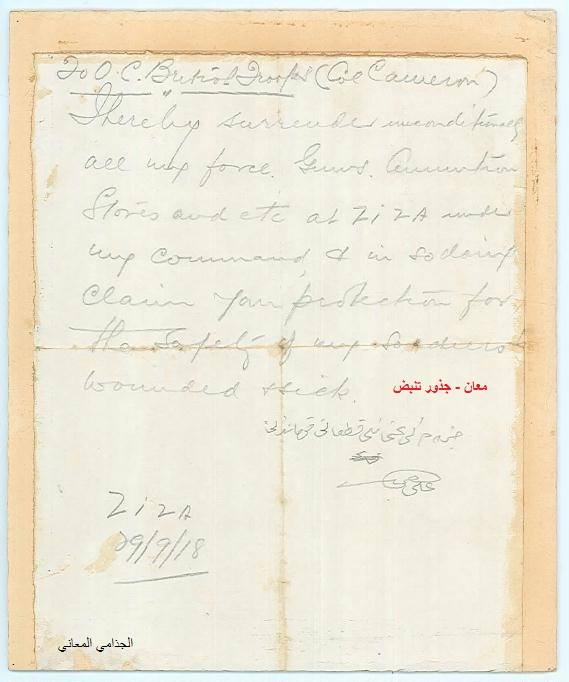 To O.C. British Troops (Col Cameron)
I hereby surrender unconditionally
all my force. Guns. Amunition
Stores and etc at ZiZA under
my command & in so doing
Claim your protection for
the Safety of my Soldiers
wounded & sick.
معان - جذور تنبض
ZiZA
29/9/18
الجذامي المعاني